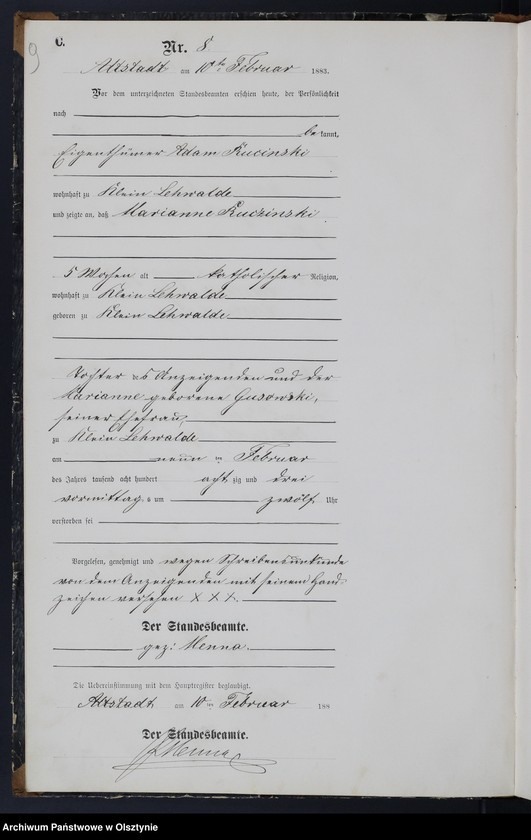 9
C.
Nr. 8
Altstadt am 10ten Februar 1883.
Vor dem unterzeichneten Standesbeamten erschien heute, der Persönlichkeit
nach
bekannt,
Eigenthümer Adam Kucinski
wohnhaft zu Klein Lehwalde
und zeigte an, daß Marianne Kuczinski
5 Wochen alt katholischer Religion,
wohnhaft zu Klein Lehwalde
geboren zu Klein Lehwalde
Tochter des Anzeigenden und der
Marianne geborene Gusowski,
seiner Ehefrau,
zu Klein Lehwalde
am neun ten Februar
des Jahres tausend acht hundert acht zig und drei
vormittags um zwölf Uhr
verstorben sei
Vorgelesen, genehmigt und wegen Schreibensunkunde
von dem Anzeigenden mit seinem Hand-
zeichen versehen X X X.
Der Standesbeamte.
gez: Menna.
Die Uebereinstimmung mit dem Hauptregister beglaubigt.
Altstadt am 10ten Februar 188
Der Standesbeamte.
Menna
Archiwum Państwowe w Olsztynie